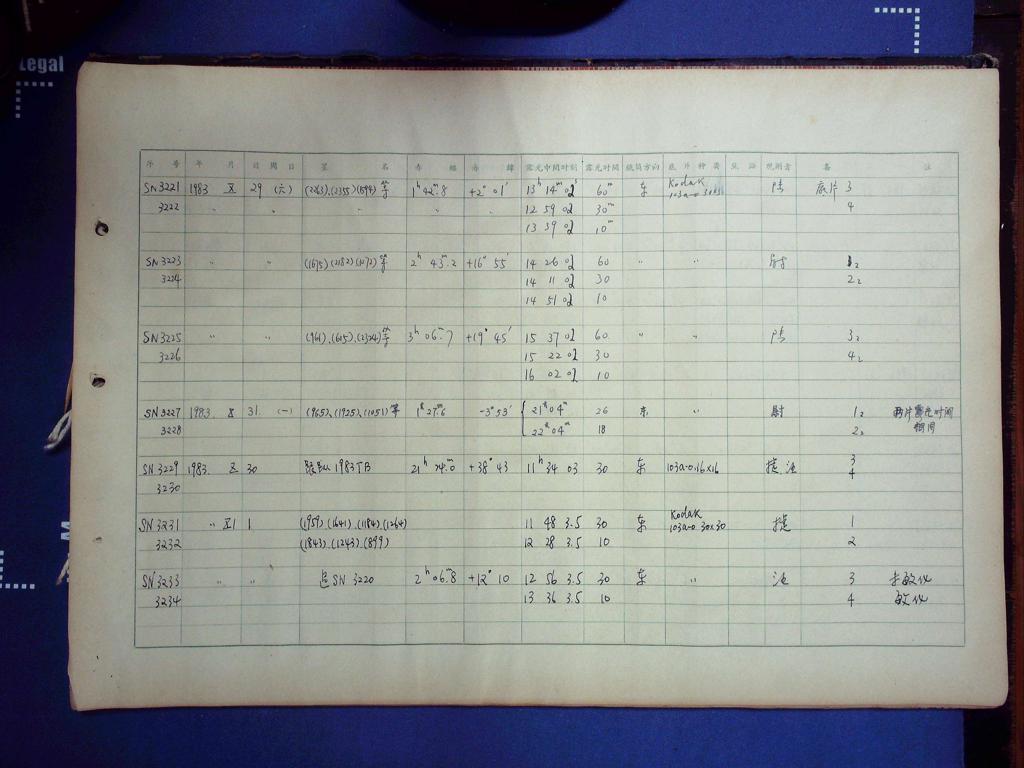 Legal
序 号 年 月 日 周 日 星 名 赤 經 赤 緯 露光中間时刻 露光时间 鏡筒方向 底 片 种 类 观測者 备 註
SN3221 1983 X 29 (六) (2263).(2355).(1594)等 1h 42m.8 +2° 01′ 13h 14m 60m 东 Kodak 陆 底片 3
3222 〃 〃 〃 〃 12 59 30m 103a-o 4
13 39 10m
SN3223 〃 〃 (1675).(2182).(1072)等 2h 43m.2 +16° 55′ 14 26 60 〃 〃 尉
3224 14 11 30 2₂
14 51 10
SN3225 〃 〃 (961).(615).(2324)等 3h 06m.7 +19° 45′ 15 37 60 〃 〃 陆 3₂
3226 15 22 30 4₂
16 02 10
SN3227 1983. X 31. (一) (965).(1925).(1051)等 1h 27m.6 -3° 53′ 21h 04m 26 东 〃 尉 1₂ 两片露光时间
3228 22h 04m 18 2₂ 相同
SN3229 1983. X 30 1983TB 21h 24m.0 +38° 43 11h 34 03 30 东 103a-o.16x16 3
3230 4
SN3231 〃 XI 1 (1959).(1641).(1184).(1264) 11 48 3.5 30 东 Kodak 103a-o 30x30 1
3232 (1843).(1243).(899) 12 28 3.5 10 2
SN3233 〃 〃 SN 3220 2h 06m.8 +12° 10 12 56 3.5 30 东 〃 3 未敏化
3234 13 36 3.5 10 4 敏化